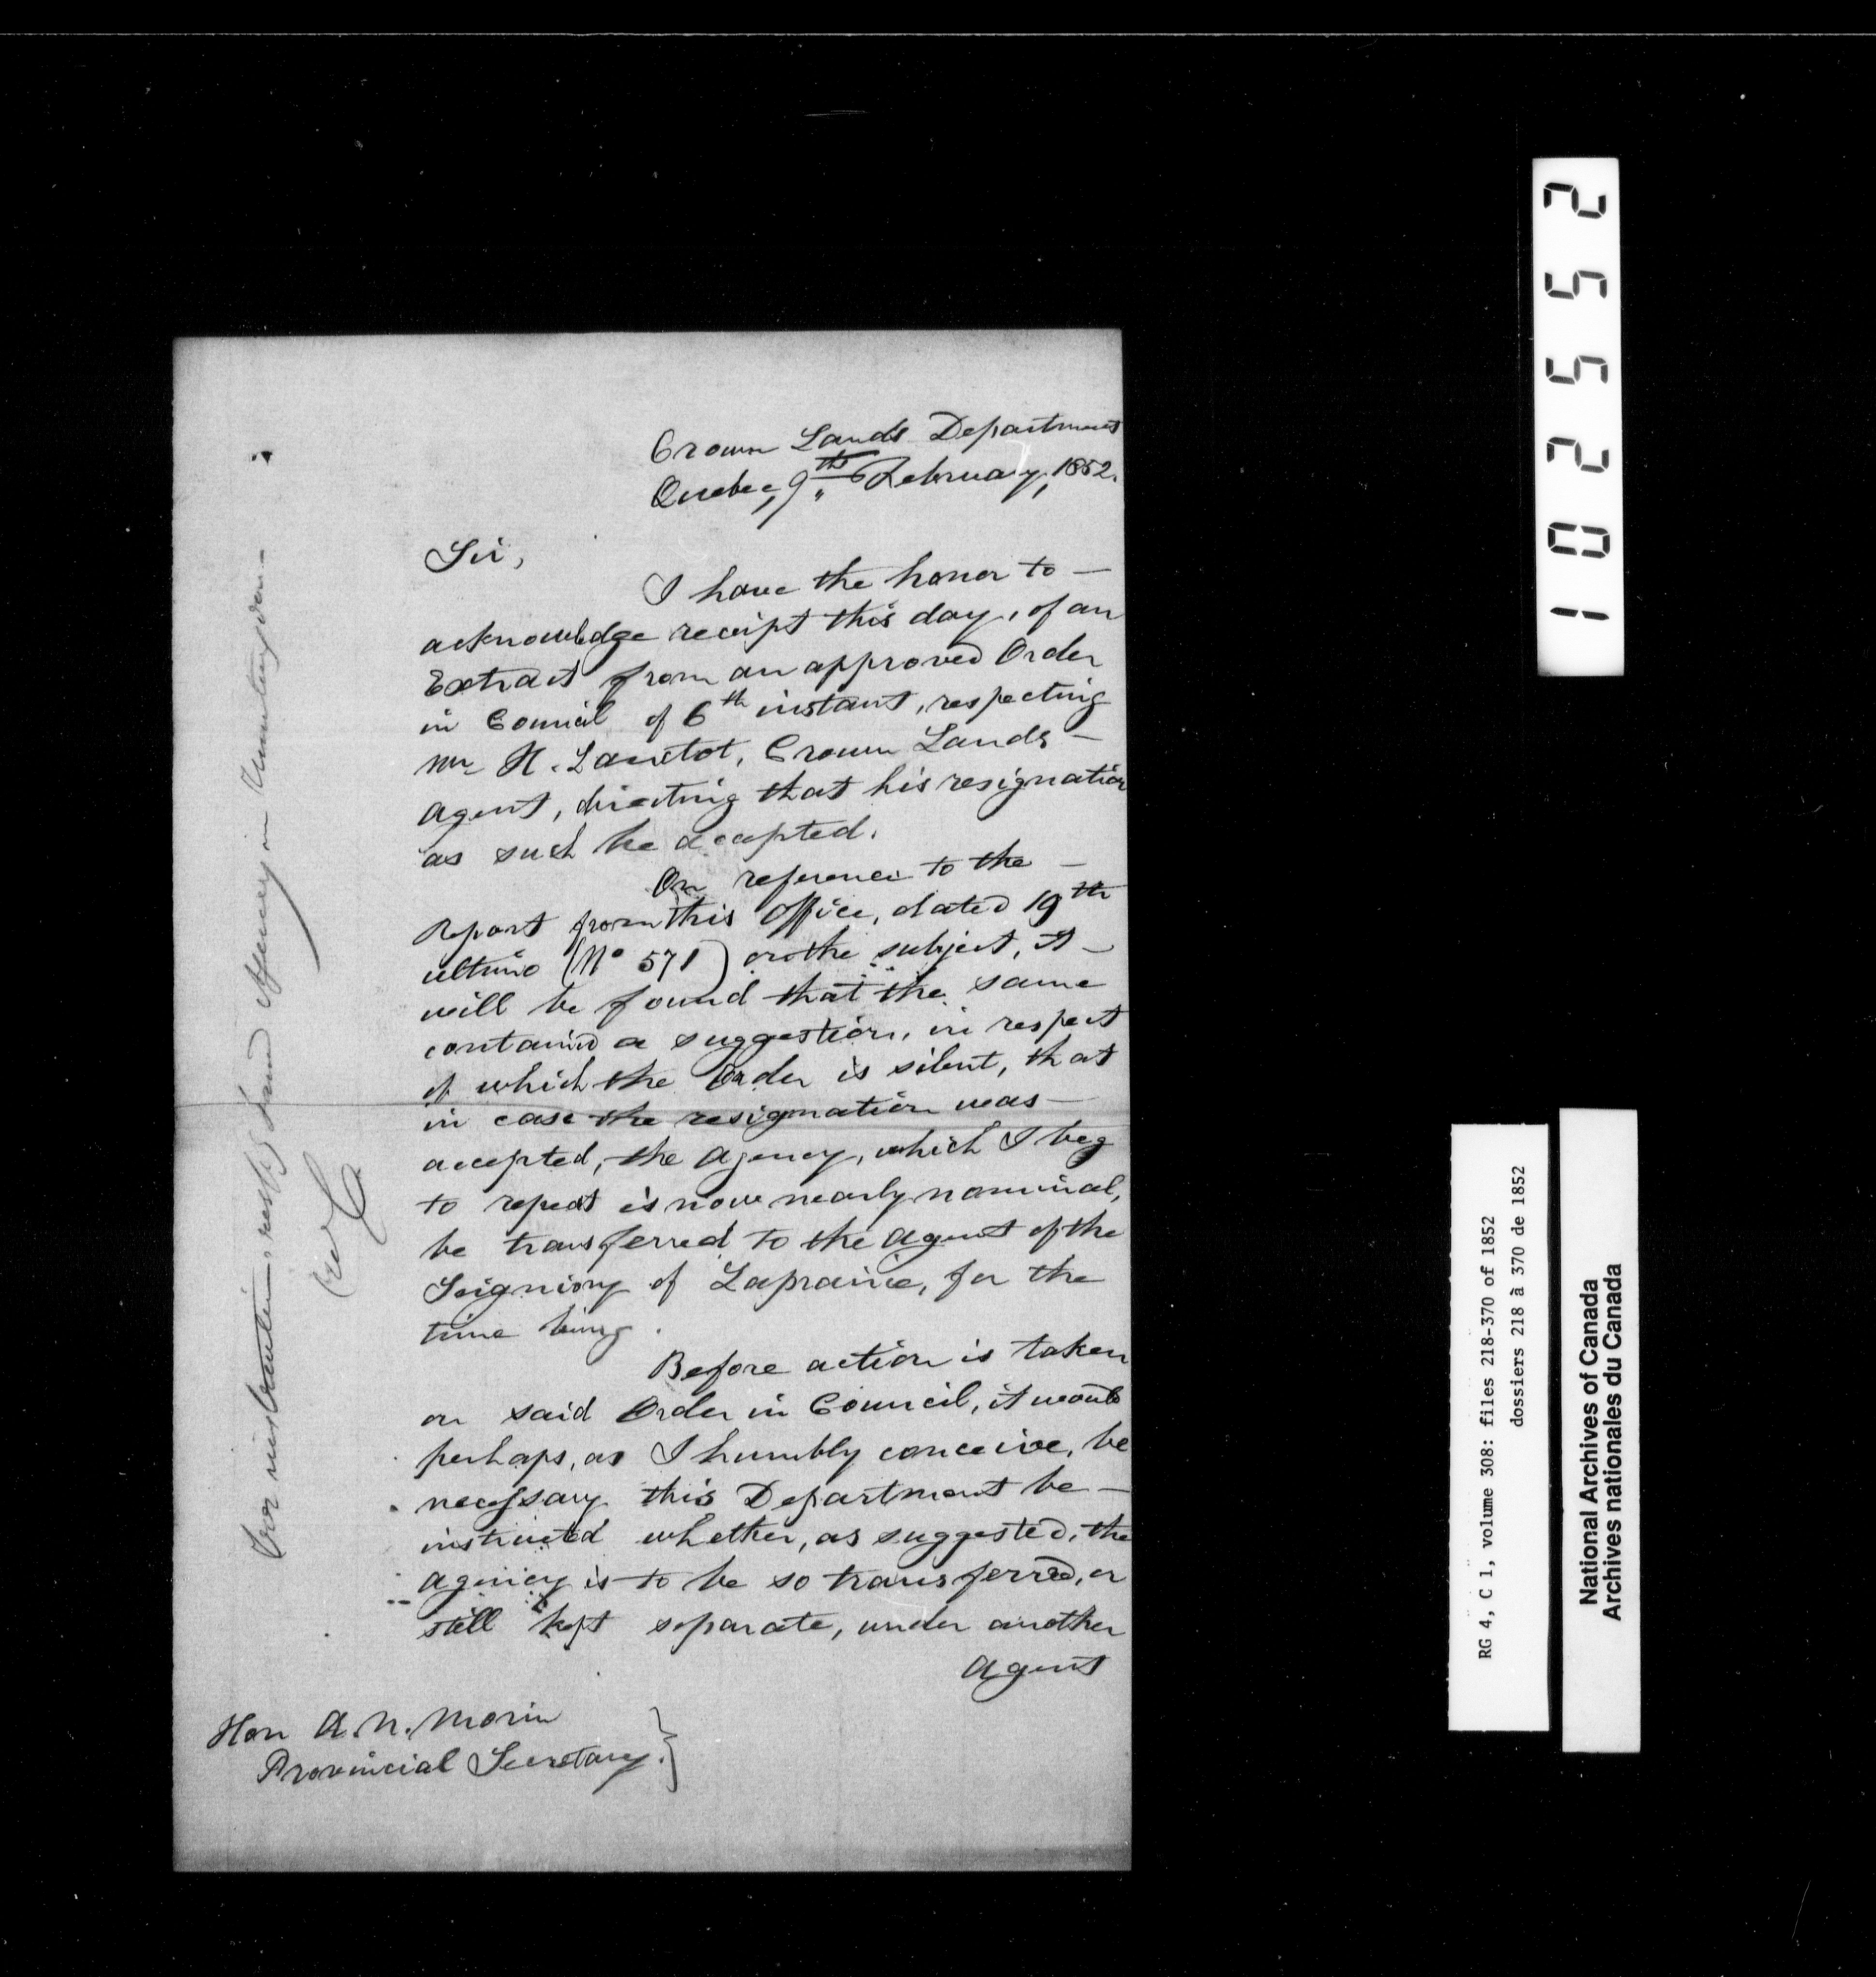 Crown Lands Department
Quebec, 9th February, 1852.
Sir,
I have the honor to —
acknowledge receipt this day, of an
Extract from an approved Order
in Council of 6th instant, respecting
Mr H. Lanctot, Crown Lands —
Agent, directing that his resignation
as such be accepted.
On reference to the —
Report from this Office, dated 19th
ultimo (No 571) on the subject, it —
will be found that the same
contained a suggestion, in respect
of which the Order is silent, that
in case the resignation was —
accepted, the Agency, which I beg
to repeat is now nearly nominal,
be transferred to the Agent of the
Seigniory of Laprairie, for the
time being.
Before action is taken
on said Order in Council, it would
perhaps, as I humbly conceive, be
necessary this Department be —
instructed whether, as suggested, the
Agency is to be so transferred, or
still kept separate, under another
Agent
Hon A. N. Morin
Provincial Secretary.}
For instructions respg Land Agency in Huntingdon —
102552
RG 4, C 1, volume 308: files 218-370 of 1852
dossiers 218 à 370 de 1852
National Archives of Canada
Archives nationales du Canada